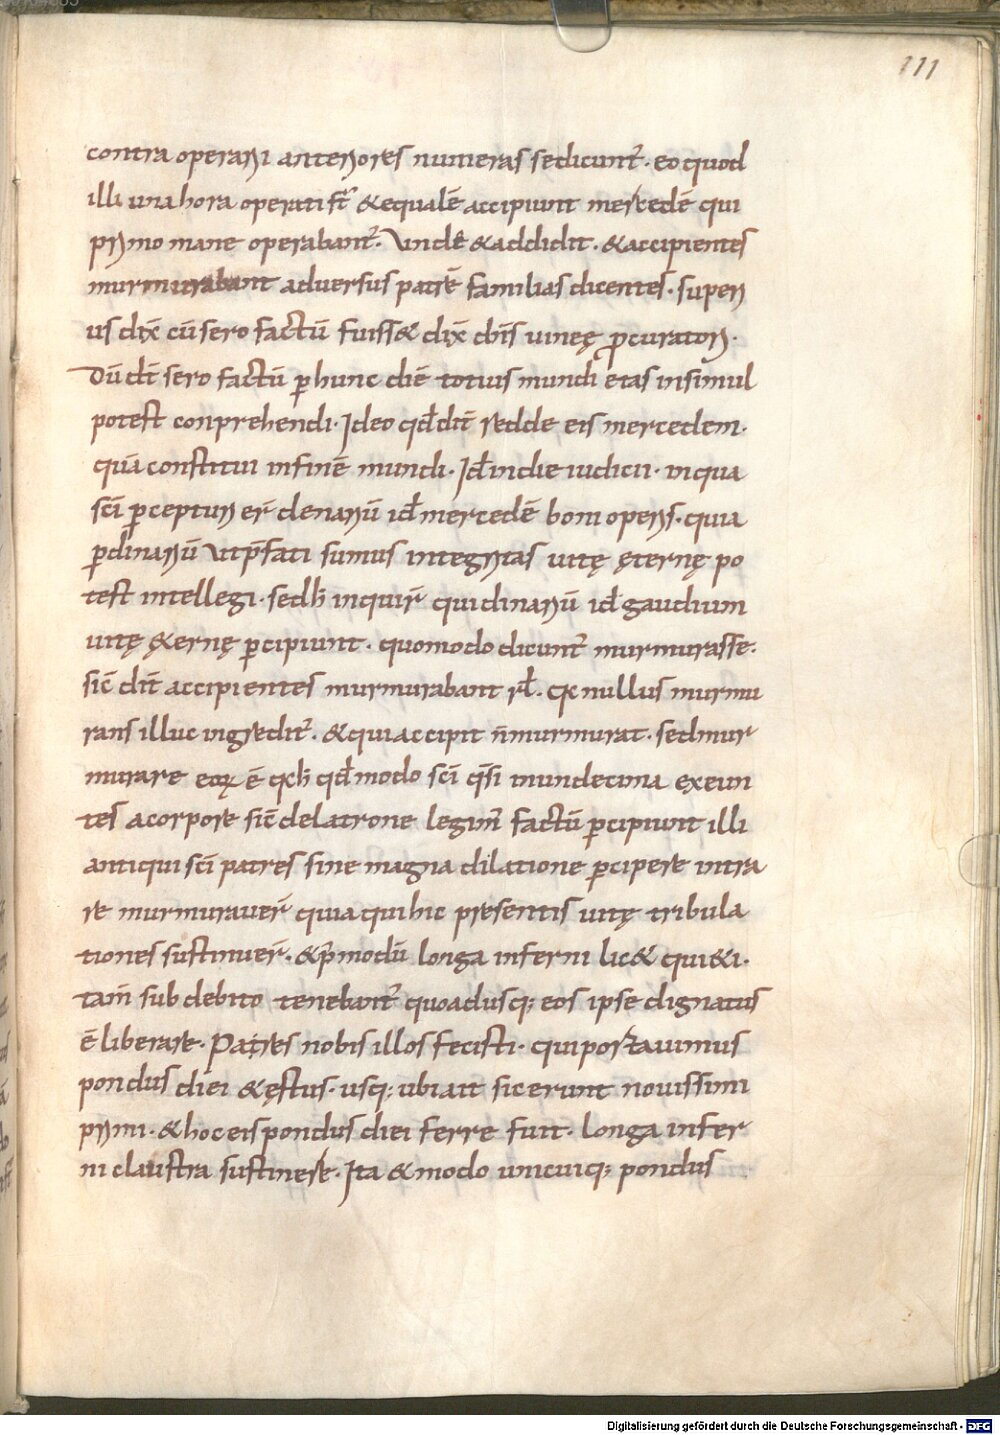 111
contra operarii anteriores numeras sedicunt̃· eo quod
illi una hora operati st̃ &equalē accipiunt mercedē qui
primo mane operabant̃· Undē &addidit· &accipientes
murmurabant adversus patrē familias dicentes· superi
us dix̄ cū sero factū fuiss& dix̄ dn̄s vineę ꝓcuratori·
Dū dt̄ sero factū ꝑ hunc diē totius mundi etas insimul
potest conprehendi· Ideo qđ dit̄ redde eis mercedem·
quā constitui in finē mundi· Iđ in die iudicii· in qua
sc̄i ꝑcepturi er̄ denariū iđ mercedē boni operis· quia
ꝑ dinariū ut p̄fati sumus integritas uitę ęternę po
test intellegi· sed h̄ inquir̄ qui dinariū iđ gaudium
uitę &ernę ꝑcipiunt· quomodo dicunt̃ murmurasse·
sic̄ dit̄ accipientes murmurabant rł· nullus murmu
rans illuc ingredit̃· &qui accipit n̄ murmurat· sed mur
murare eoꝝ ē qđ modo sc̄i q̄si mundecima exeun
tes a corpore sic̄ de latrone legim̄ factū ꝑcipiunt illi
antiqui sc̄i patres sine magna dilatione ꝑcipere intra
re murmuraver̄ quia qui hic presentis uitę tribula
tiones sustinuer̄· &p̄modū longa inferni lic& qui&i·
tam̄ sub debito tenebant̃ quo adusq; eos ipse dignatus
ē liberare· Patres nobis illos fecisti· qui portavimus
pondus diei &ęstus· usq; ubi ait sic erunt novissimi
primi· &hoc eis pondus diei ferre fuit· longa infer
ni claustra sustinere· Ita &modo unicuiq; pondus
Digitalisierung gefördert durch die Deutsche Forschungsgemeinschaft - DFG